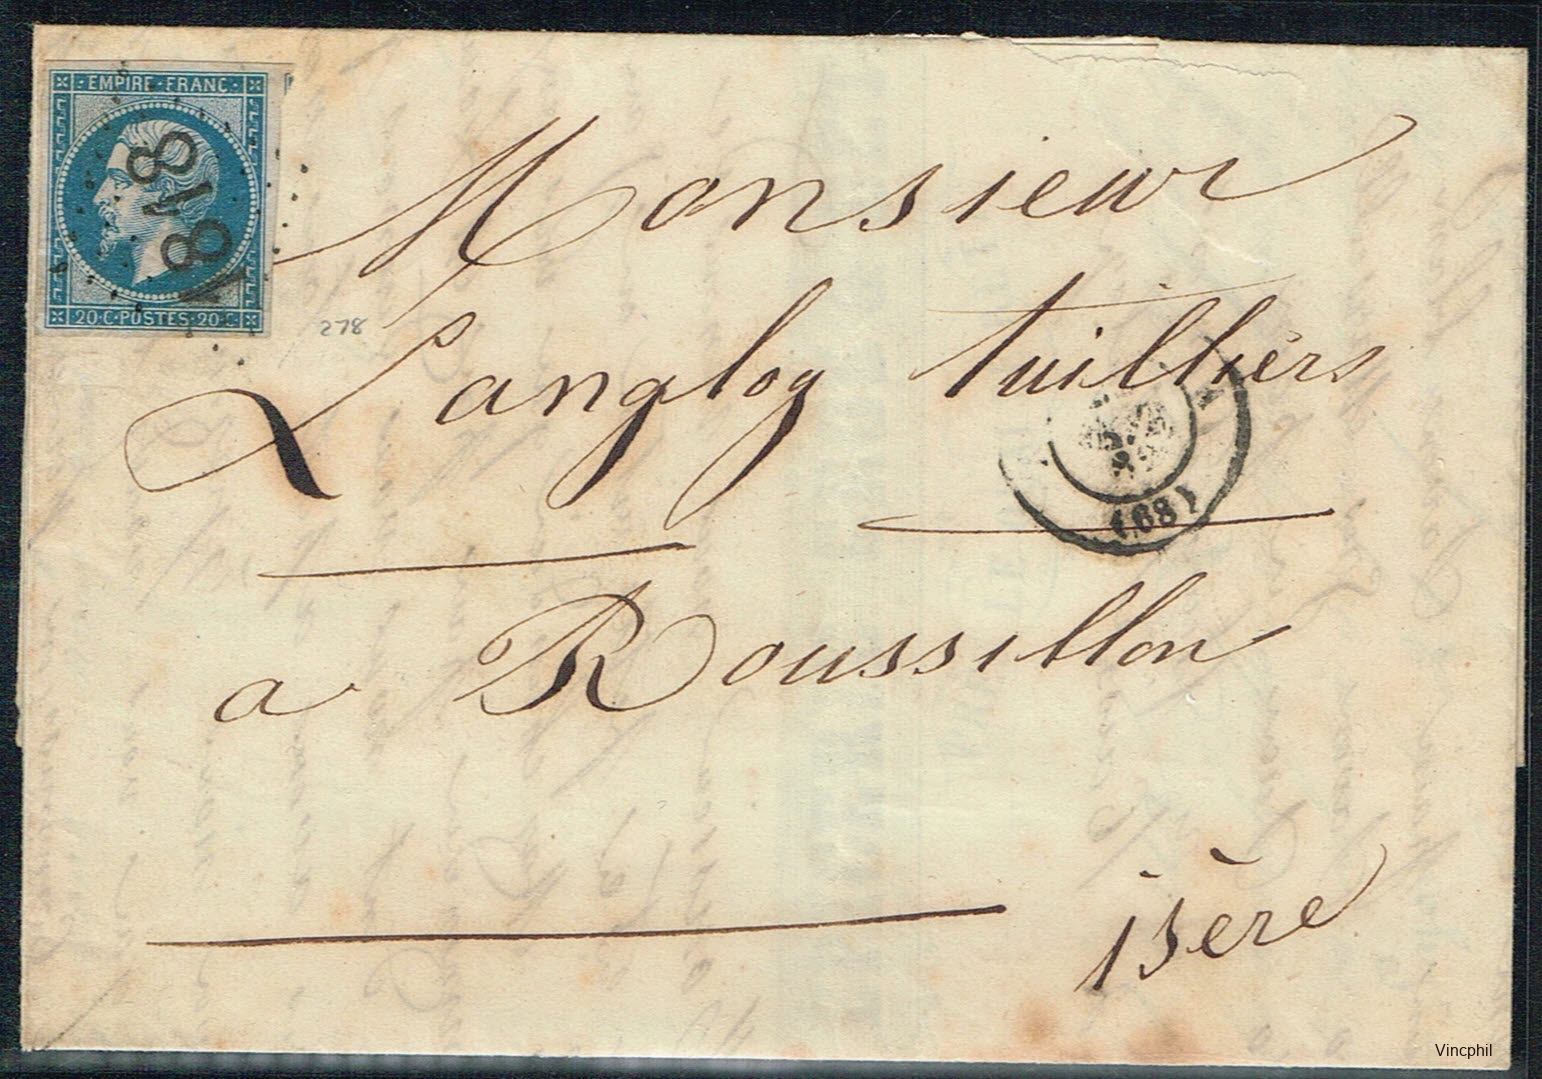 EMPIRE FRANC
1818
20·C·POSTES·20·C
278
Monsieur
Langloy tuilliers
(68)
a Roussillon
isère
Vincphil